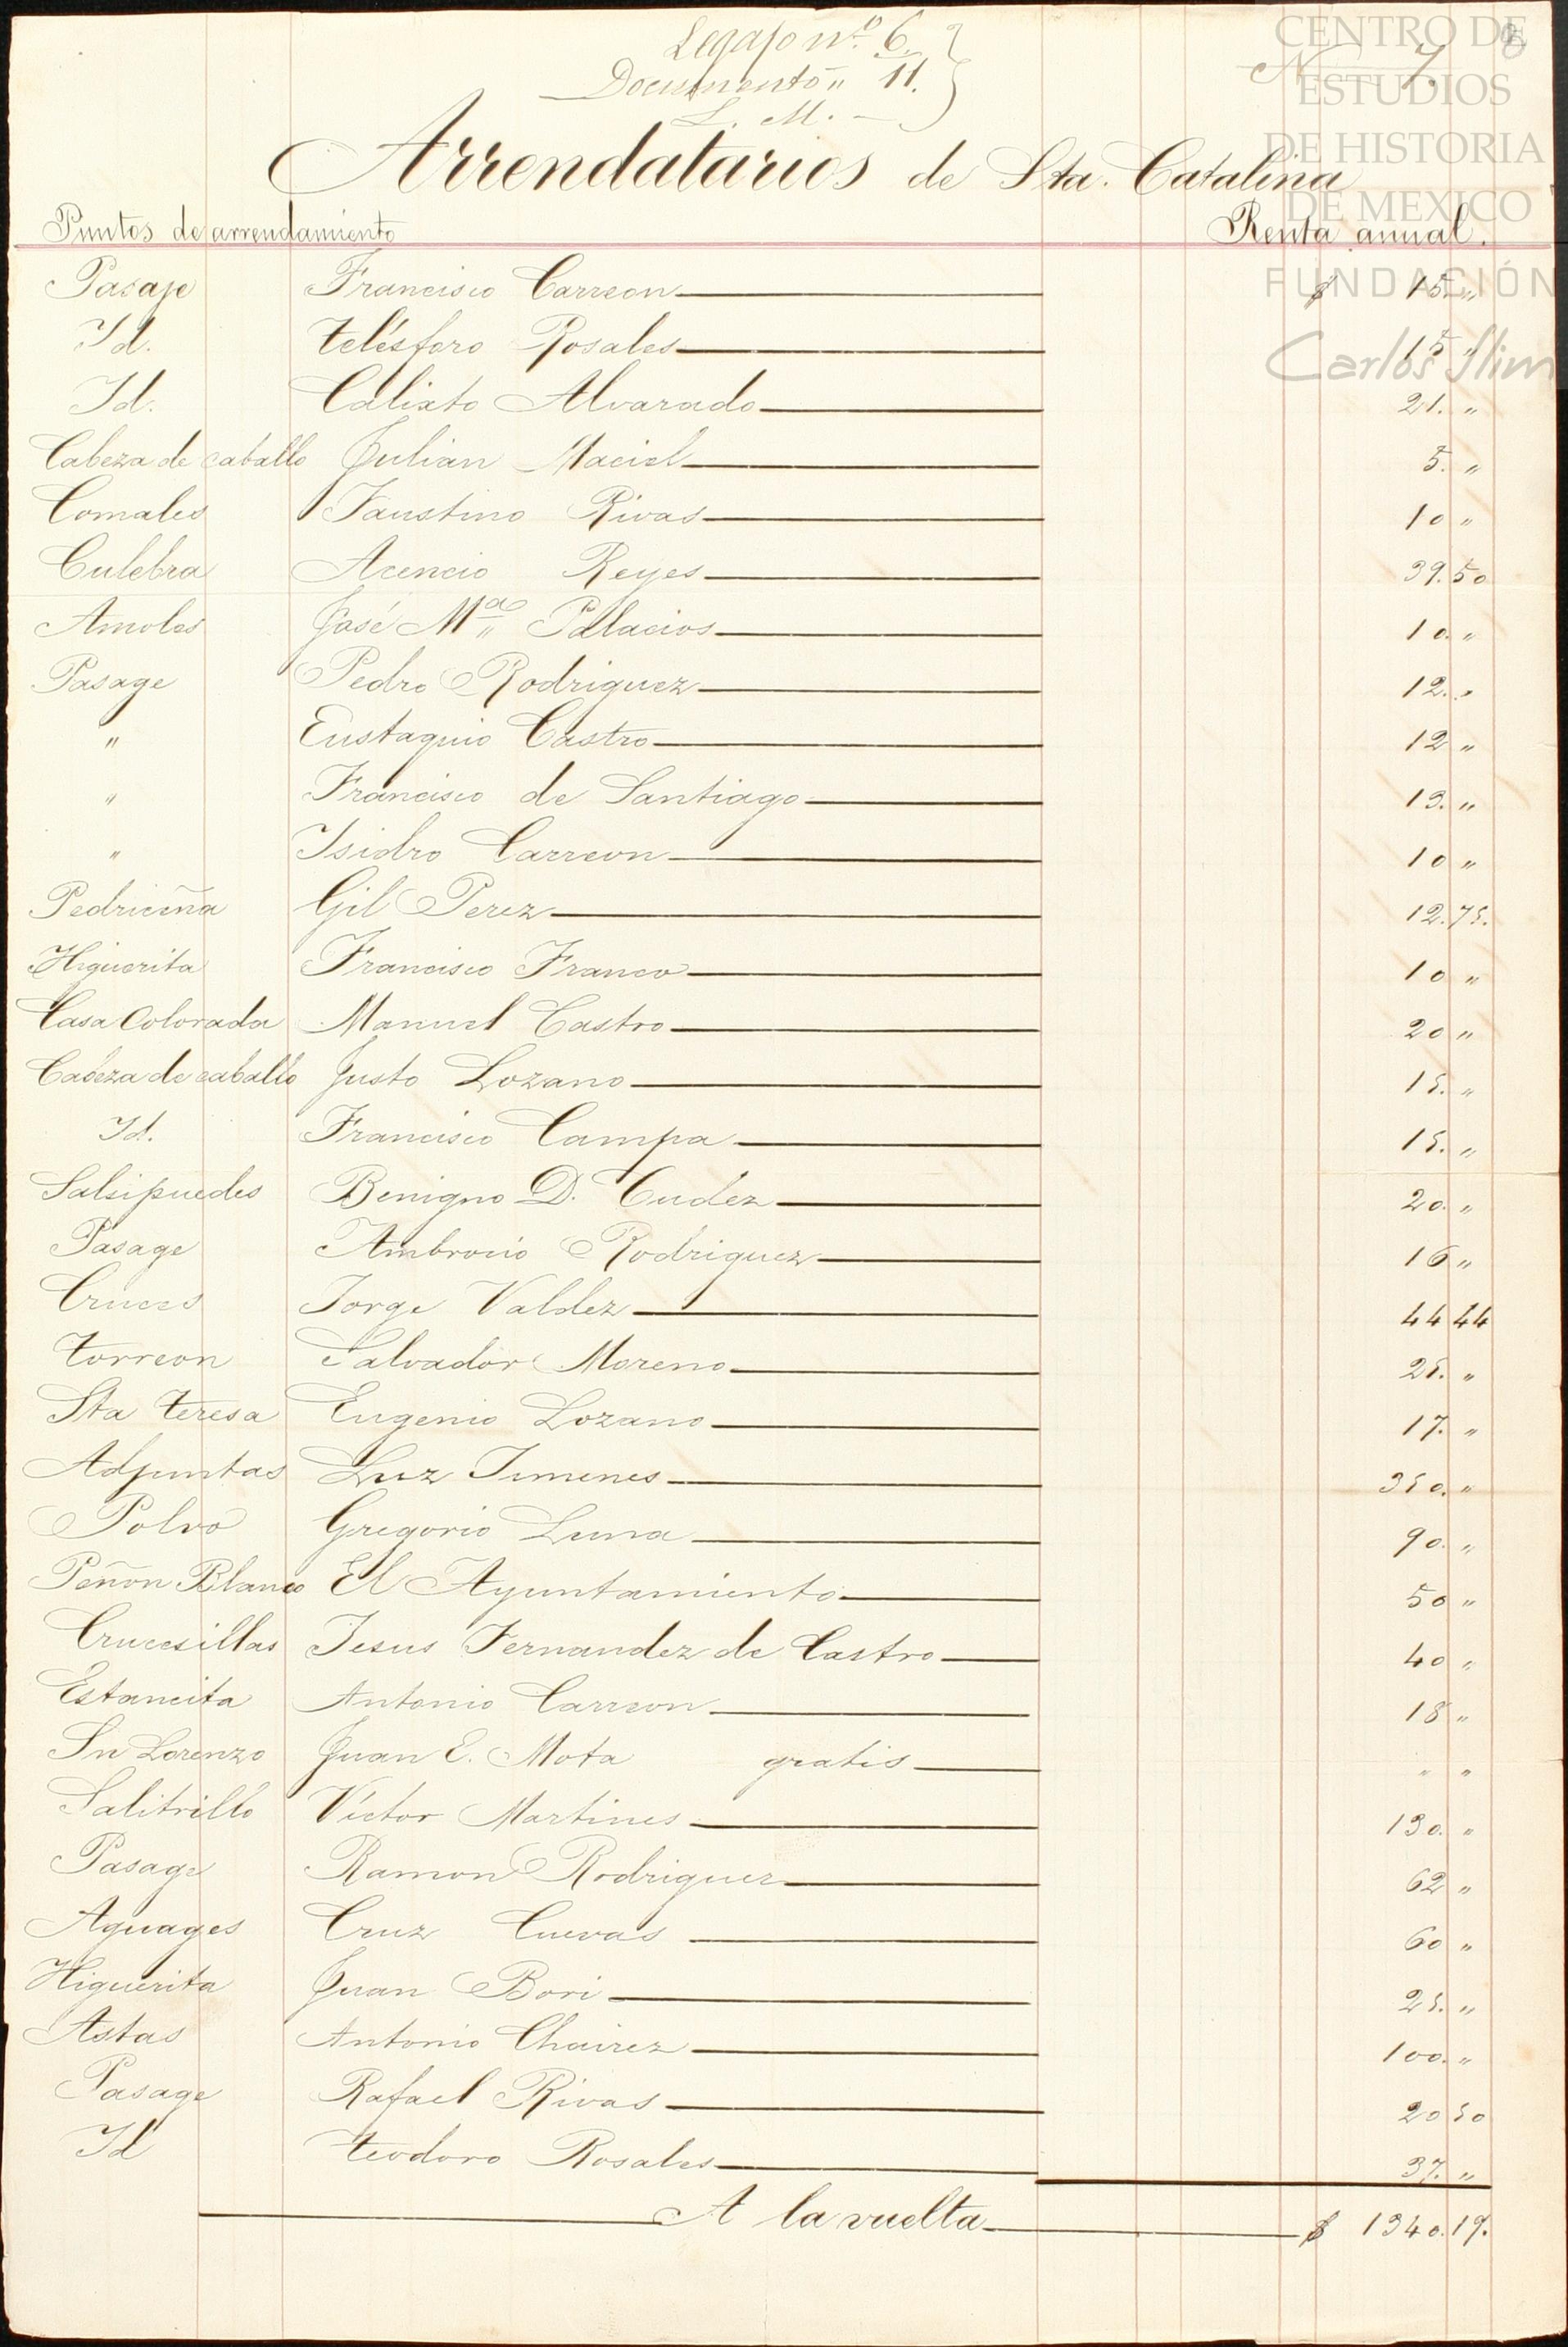 Legajo nº. 6.
Documento „ 11.
L. M.
N 7.
8
Arrendatarios de Sta. Catalina
Puntos de arrendamiento Renta anual.
Pasaje Francisco Carreon $ 15. „
Id. Telésforo Rosales 15 „
Id. Calixto Alvarado 21. „
Cabeza de caballo Julian Maciel 5. „
Comales Faustino Rivas 10 „
Culebra Acencio Reyes 39.50
Amoles José Mª Palacios 10. „
Pasage Pedro Rodriguez 12. „
„ Eustaquio Castro 12 „
„ Francisco de Santiago 13. „
„ Isidro Carreon 10 „
Pedriceña Gil Perez 12.75.
Higuerita Francisco Franco 10 „
Casa Colorada Manuel Castro 20 „
Cabeza de caballo Justo Lozano 15. „
Id. Francisco Campa 15. „
Salsipuedes Benigno D. Cudez 20. „
Pasage Ambrocio Rodriguez 16 „
Cruces Jorge Valdez 44 44
Torreon Salvador Moreno 25. „
Sta Teresa Eugenio Lozano 17. „
Adjuntas Luz Jimenes 350. „
Polvo Gregorio Luna 90. „
Peñon Blanco El Ayuntamiento 50 „
Crucesillas Jesus Fernandez de Castro 40 „
Estancita Antonio Carreon 18 „
Sn Lorenzo Juan E. Mota gratis „ „
Salitrillo Victor Martines 130. „
Pasage Ramon Rodriguez 62 „
Aguages Cruz Cuevas 60 „
Higuerita Juan Bori 25. „
Astas Antonio Chairez 100. „
Pasage Rafael Rivas 20 50
Id Teodoro Rosales 37. „
A la vuelta $ 1340.19.
CENTRO DE
ESTUDIOS
DE HISTORIA
DE MEXICO
FUNDACIÓN
Carlos Slim